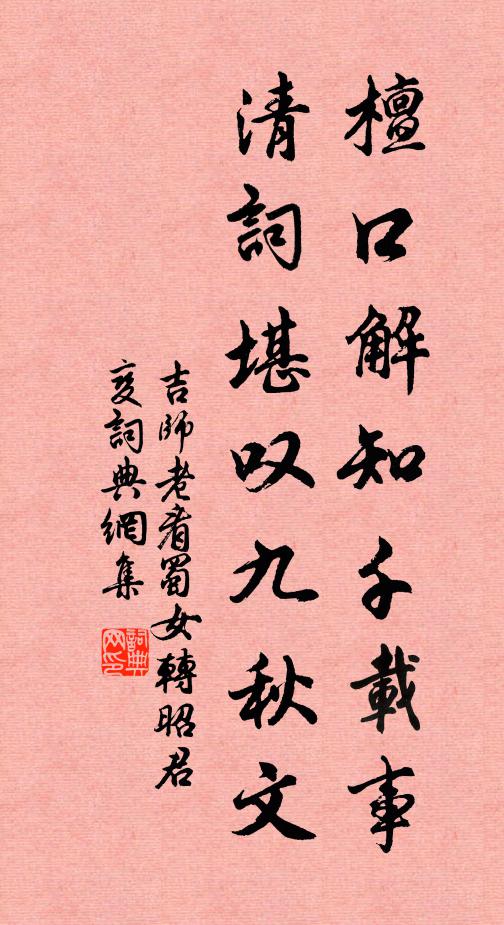 檀口解知千載事
清詞堪叹九秋文
吉師老看蜀女轉昭君
变詞典網集
詞典网印